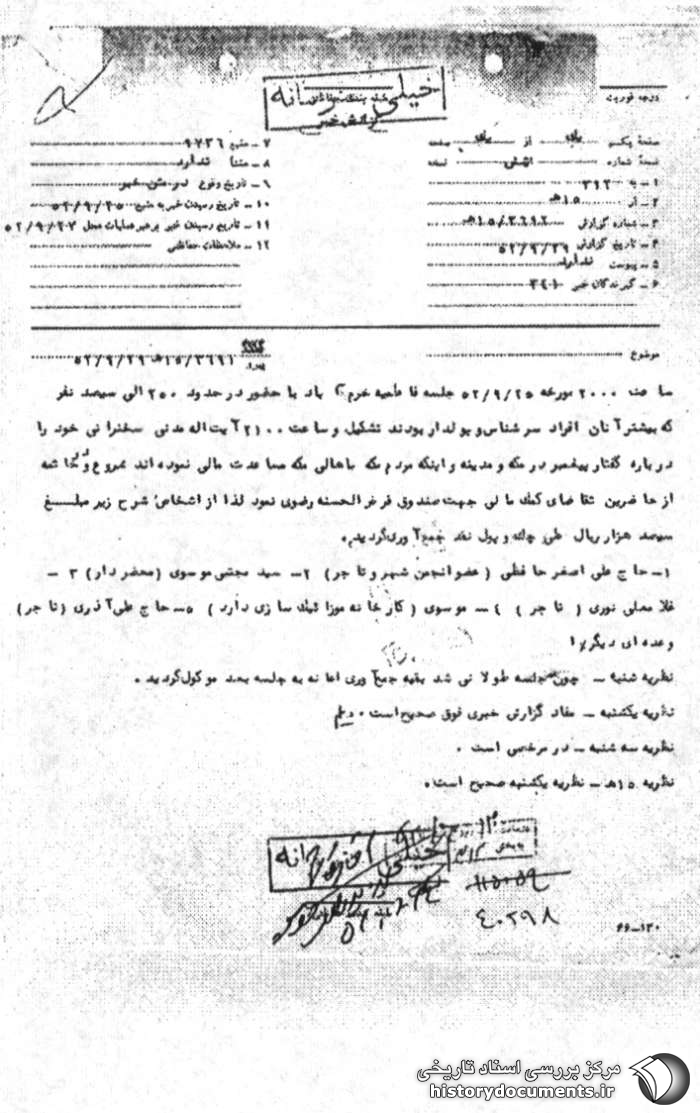 خیلی محرمانه
گزارش خبر
درجه فوریت
صفحه یکم از صفحه
نسخه شماره نسخه
۱ ــ به ۳۱۲
۲ ــ از ۱۵هـ
۳ ــ شماره گزارش ۱۵/۳۶۹۲هـ
۴ ــ تاریخ گزارش ۵۲/۹/۲۹
۵ ــ پیوست ندارد
۶ ــ گیرندگان خبر ۳۴۱
۷ ــ منبع ۹۷۳۶
۸ ــ منشأ ندارد
۹ ــ تاریخ وقوع در متن خبر
۱۰ ــ تاریخ رسیدن خبر به منبع ۵۲/۹/۲۵
۱۱ ــ تاریخ رسیدن خبر برهبر عملیات محل ۵۲/۹/۲۷
۱۲ ــ ملاحظات حفاظتی
موضوع
۱۵/۳۶۹۱هـ ۵۲/۹/۲۹
ساعت ۲۰۰۰ مورخه ۵۲/۹/۲۵ جلسه فاطمیه خرم آباد با حضور در حدود ۲۵۰ الی سیصد نفر
که بیشتر آنان افراد سرشناس و پولدار بودند تشکیل و ساعت ۲۱۰۰ آیت اله مدنی سخنرانی خود را
درباره گفتار پیغمبر در مکه و مدینه و اینکه مردم مکه باهالی مکه مساعدت مالی نموده اند شروع و در خاتمه
از حاضرین تقاضای کمک مالی جهت صندوق قرض الحسنه رضوی نمود لذا از اشخاص شرح زیر مبلـــغ
سیصد هزار ریال طی چک و پول نقد جمع آوری گردید.
۱ــ حاج علی اصغر حافظی (عضو انجمن شهر و تاجر) ۲ــ سید مجتبی موسوی (محضردار) ۳ ــ
غلامعلی نوری (تاجر) ٤ــ موسوی (کارخانه موزائیک سازی دارد) ۵ــ حاج علی آذری (تاجر)
و عده ای دیگر
نظریه شنبه ــ چون جلسه طولانی شد بقیه جمع آوری اعانه به جلسه بعد موکول گردید.
نظریه یکشنبه ــ مفاد گزارش خبری فوق صحیح است.
نظریه سه شنبه ــ در مرخصی است.
نظریه ۱۵هـ ــ نظریه یکشنبه صحیح است.
خیلی محرمانه
٤۰۲۹۸
۶۶ــ۱۲۰
مرکز بررسی اسناد تاریخی
historydocuments.ir